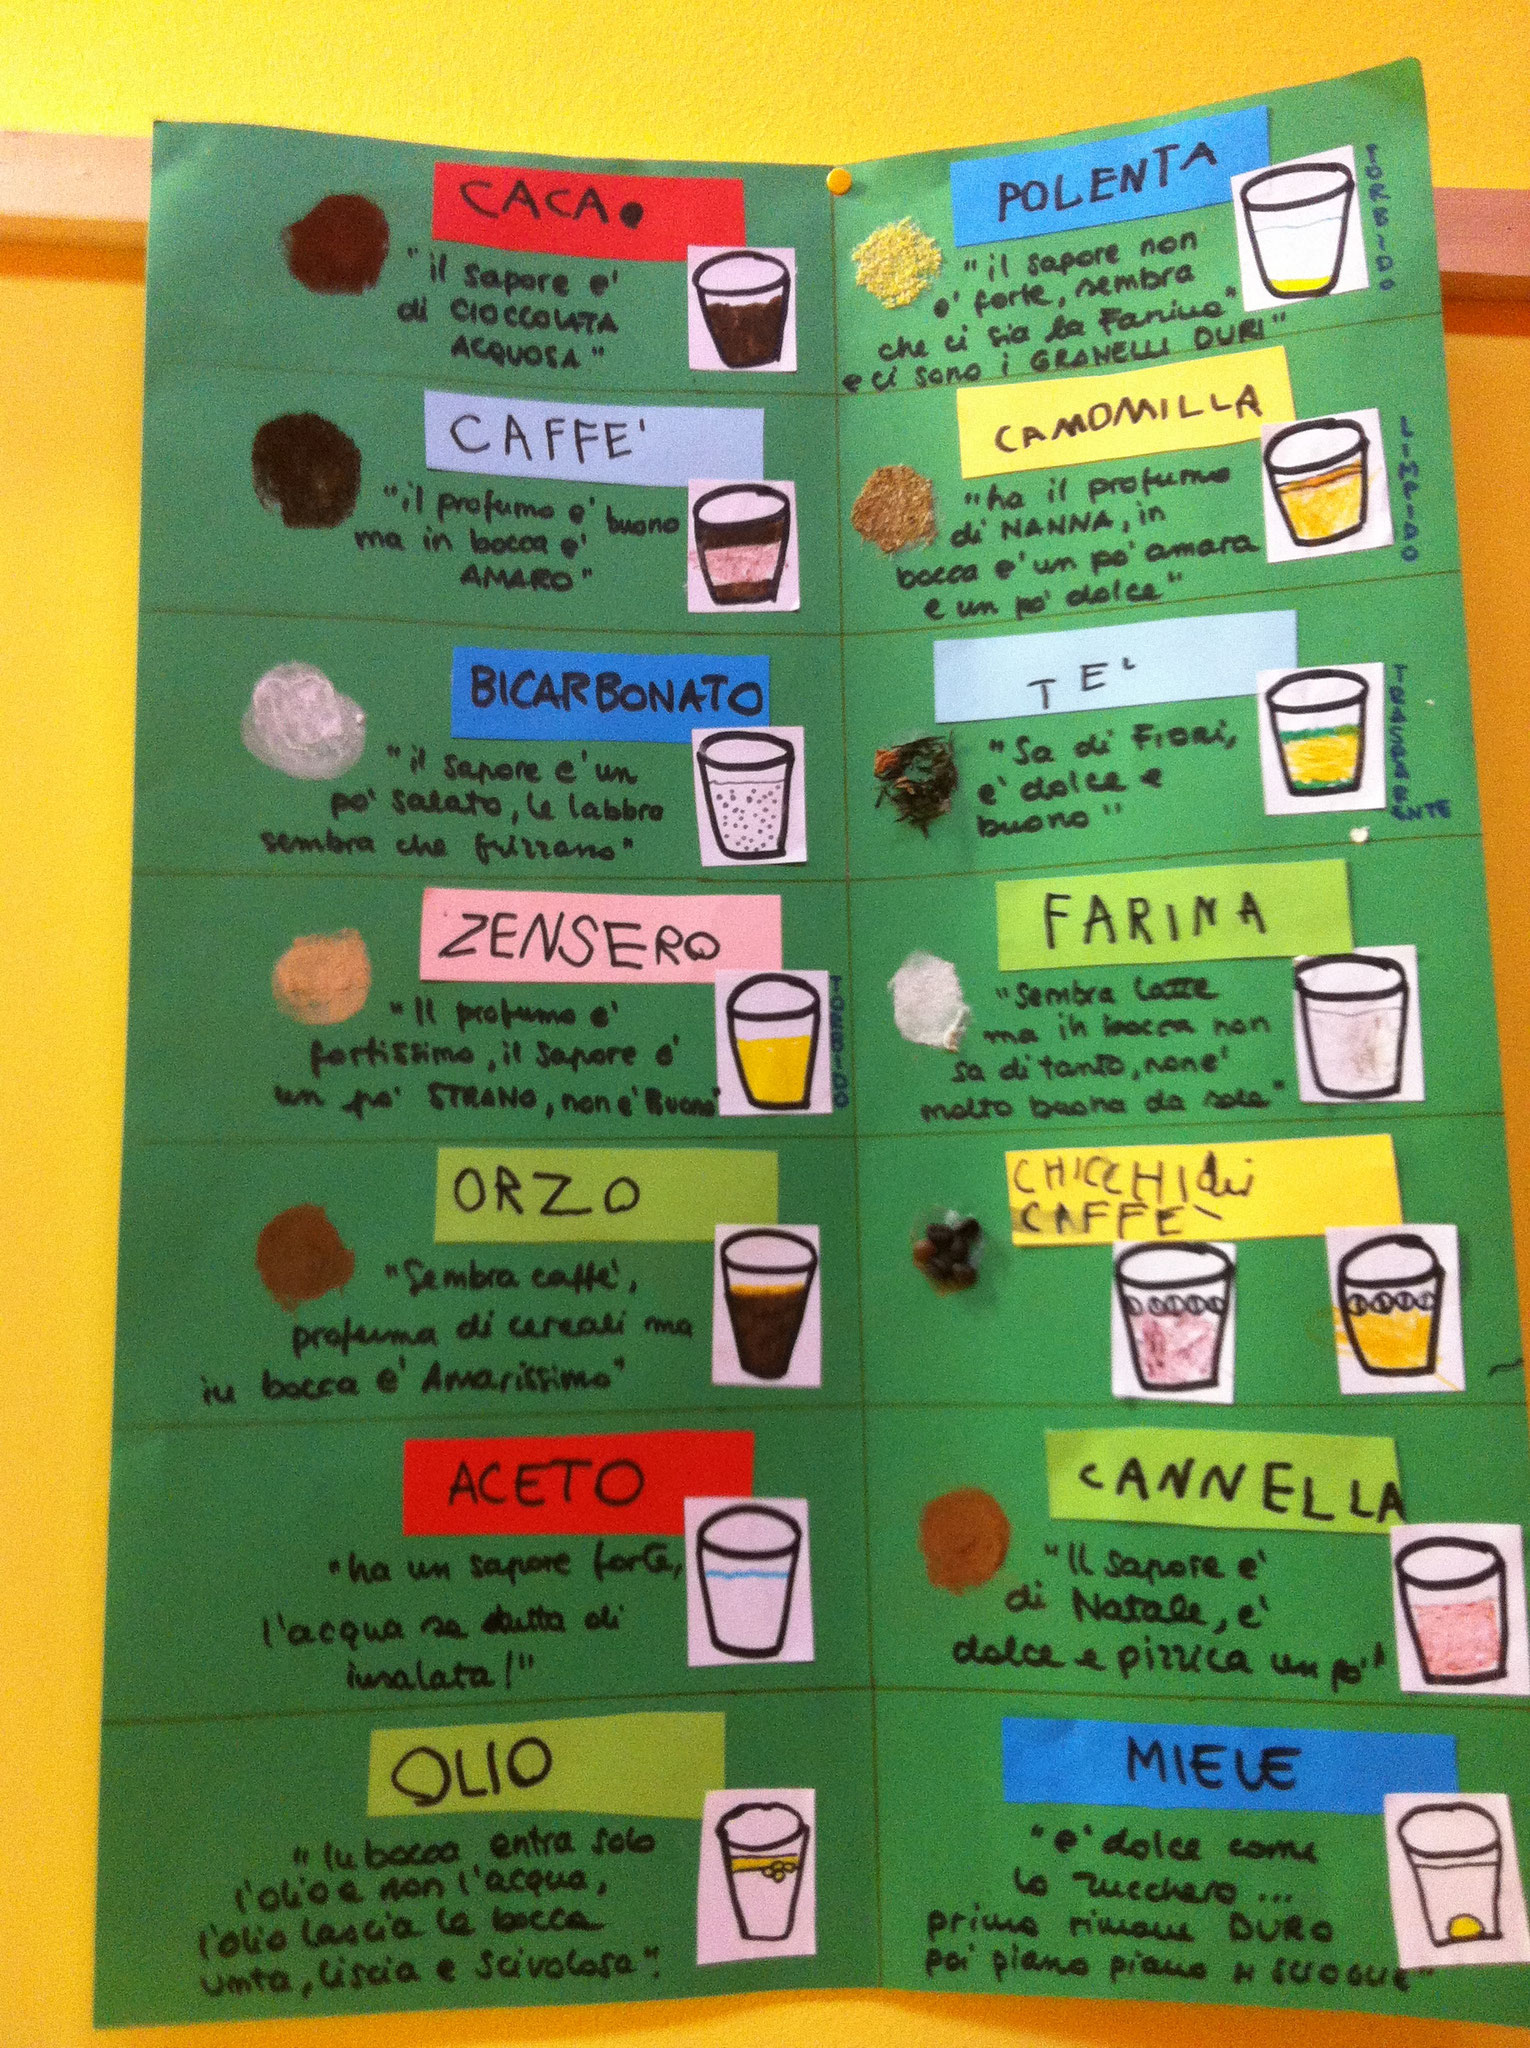 CACAO
"il sapore e'
di CIOCCOLATA
ACQUOSA"
CAFFE'
"il profumo e' buono
ma in bocca e'
AMARO"
BICARBONATO
"il sapore e' un
po' salato, le labbra
sembra che frizzano"
ZENSERO
TORBIDO
"Il profumo e'
fortissimo, il sapore e'
un po' STRANO, non e' Buono"
ORZO
"Sembra caffe',
profuma di cereali ma
in bocca e' Amarissimo"
ACETO
"ha un sapore forte,
l'acqua sa tutta di
insalata!"
OLIO
"In bocca entra solo
l'olio e non l'acqua,
l'olio lascia la bocca
unta, liscia e scivolosa".
POLENTA
TORBIDO
"il sapore non
e' forte, sembra
che ci sia la Farina"
e ci sono i GRANELLI DURI"
CAMOMILLA
LIMPIDO
"ha il profumo
di NANNA, in
bocca e' un po' amara
e un po' dolce"
TE'
TRASPARENTE
"Sa di Fiori,
e' dolce e
buono"
FARINA
"Sembra latte
ma in bocca non
sa di tanto, non e'
molto buona da sola"
CHICCHI di
CAFFE`
CANNELLA
"Il sapore e'
di Natale, e'
dolce e pizzica un po'"
MIELE
"e' dolce come
lo zucchero...
primo rimane DURO
poi piano piano si SCIOGLIE"